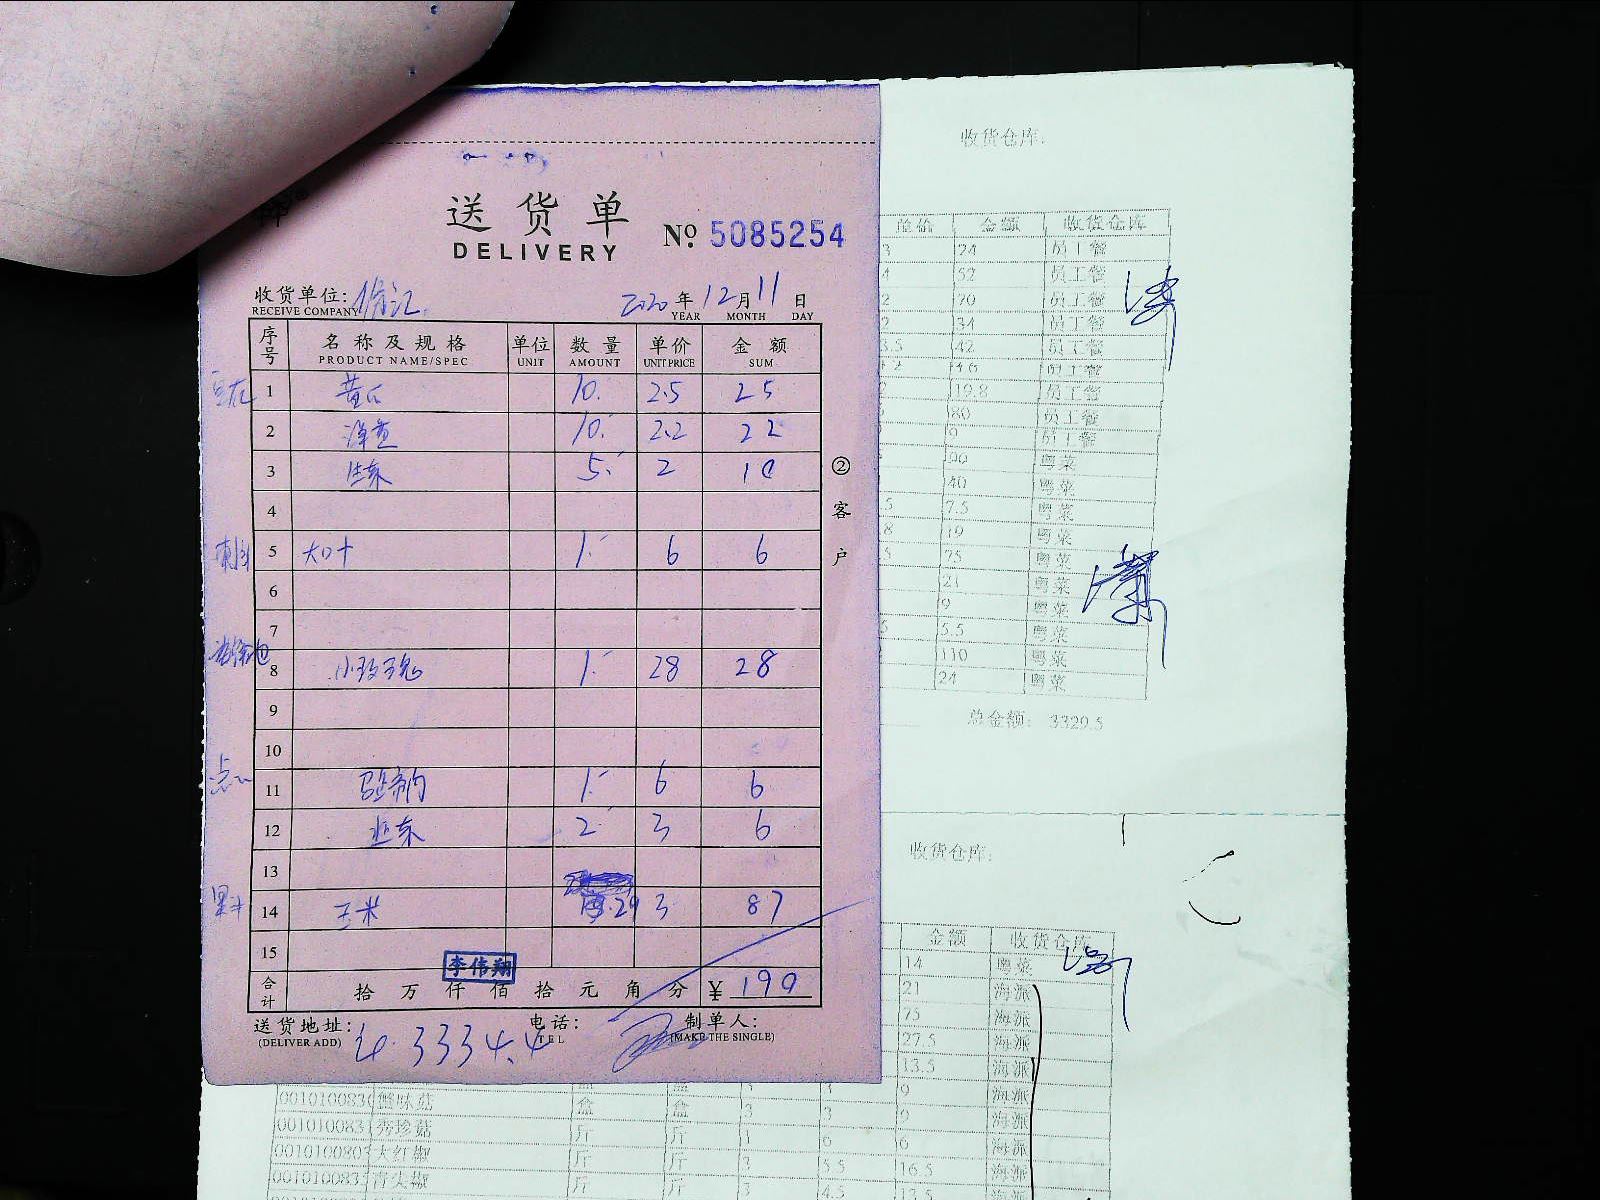 送货单
DELIVERY
№ 5085254
收货单位:
RECEIVE COMPANY
2020年12月11日
YEAR MONTH DAY
序号 名称及规格 单位 数量 单价 金额
PRODUCT NAME/SPEC UNIT AMOUNT UNIT PRICE SUM
1 黄瓜 10. 2.5 25
2 洋葱 10. 2.2 22
3 生菜 5. 2 10
4
5 大叶 1. 6 6
6
7
8 小玫瑰 1. 28 28
9
10
11 1. 6 6
12 韭菜 2 3 6
13
14 玉米 29 3 87
15
李伟翔
合计 拾万仟佰拾元角分 ¥ 190
送货地址:
(DELIVER ADD)
3334.4
电话:
TEL
制单人:
(MAKE THE SINGLE)
②客户
收货仓库:
单价 金额 收货仓库
3 24 员工餐
4 52 员工餐
2 70 员工餐
2 34 员工餐
3.5 42 员工餐
员工餐
19.8 员工餐
80 员工餐
9 员工餐
90 粤菜
40 粤菜
.5 7.5 粤菜
8 19 粤菜
5 75 粤菜
21 粤菜
9 粤菜
5.5 粤菜
110 粤菜
24 粤菜
总金额: 3329.5
收货仓库:
金额 收货仓库
14 粤菜
21 海派
75 海派
27.5 海派
13.5 海派
9 海派
蟹味菇 盒 盒 3 3 9 海派
秀珍菇 斤 斤 1 6 6 海派
大红椒 斤 斤 3 5.5 16.5 海派
青尖椒 斤 斤 3 4.5 13.5 海派